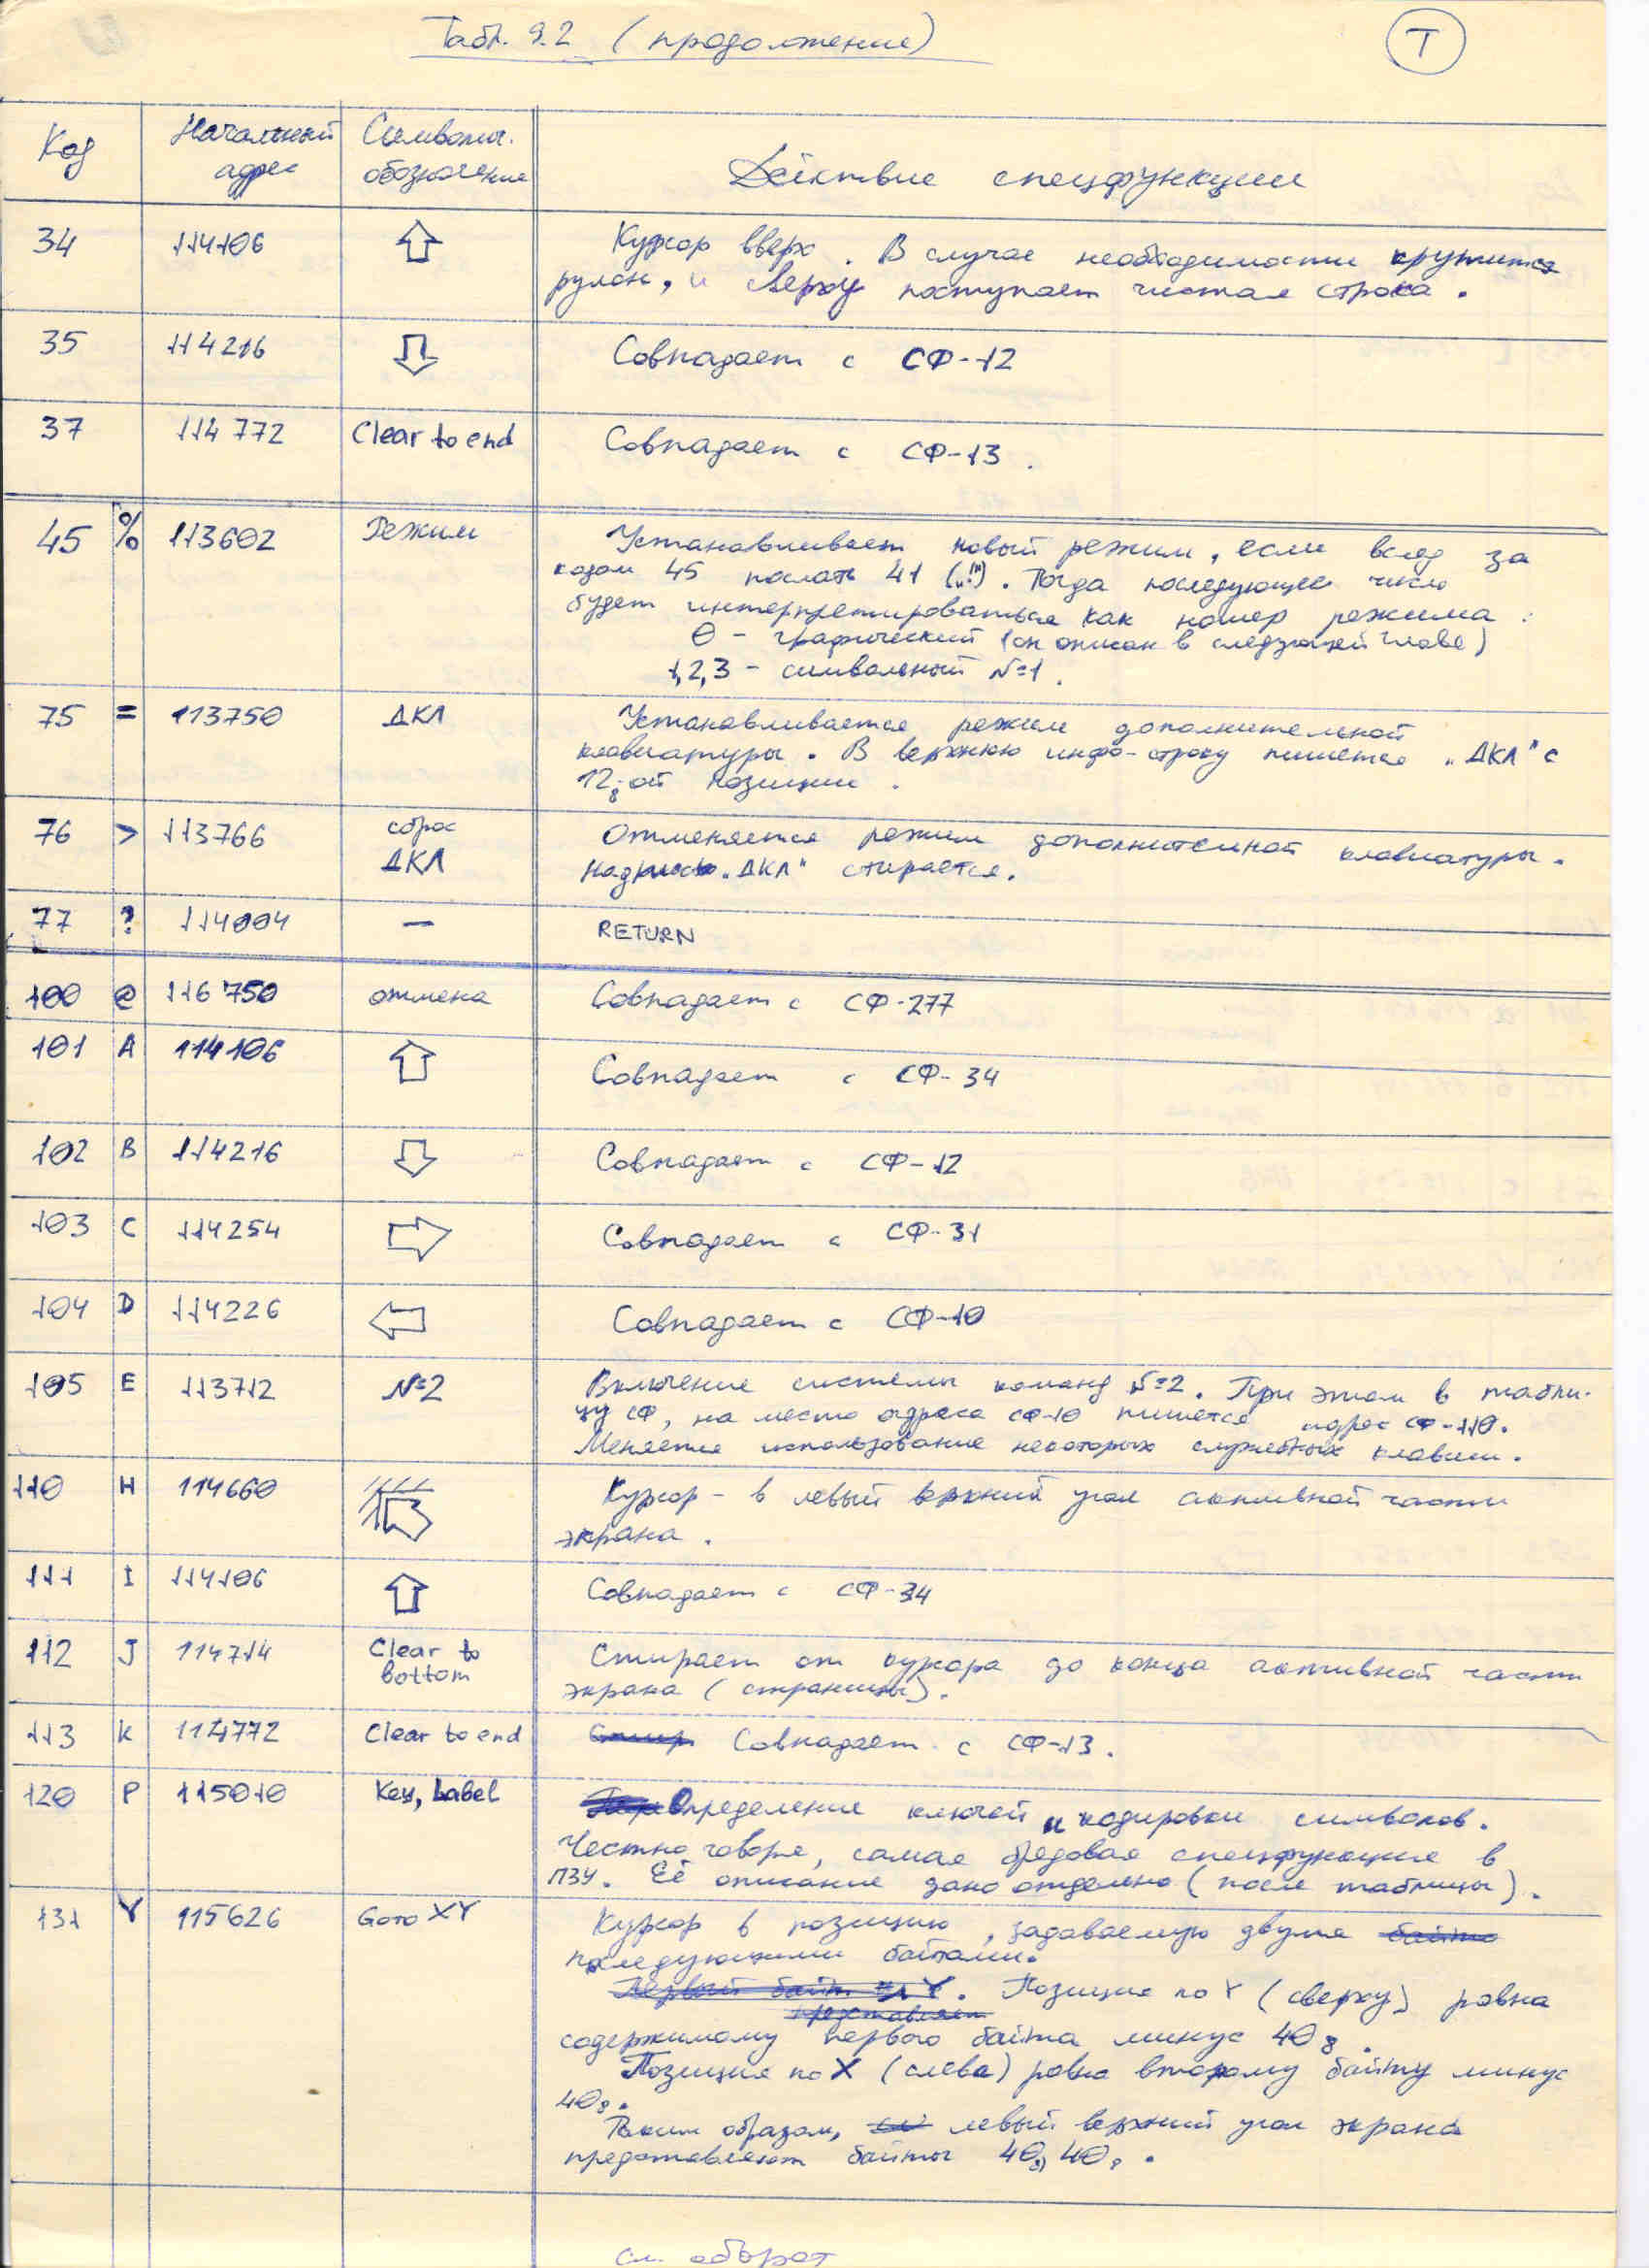 Табл. 9.2 (продолжение)
Т
Код
Начальный адрес
Символич. обозначение
Действие спецфункции
34 114106 ⇧
Курсор вверх. В случае необходимости крутится
рулон, и сверху поступает чистая строка.
35 114216 ⇩ Совпадает с СФ-12
37 114772 Clear to end Совпадает с СФ-13.
45 % 113602 Режим
Устанавливает новый режим, если вслед за
кодом 45 послать 41 („!"). Тогда последующее число
будет интерпретироваться как номер режима:
0 - графический (он описан в следующей главе)
1,2,3 - символьный №1.
75 = 113750 ДКЛ
Устанавливается режим дополнительной
клавиатуры. В верхнюю инфо-строку пишется „ДКЛ" с
12₈-ой позиции.
76 > 113766 сброс ДКЛ
Отменяется режим дополнительной клавиатуры.
Надпись „ДКЛ" стирается.
77 ? 114004 — RETURN
100 @ 116750 отмена Совпадает с СФ-277
101 A 114106 ⇧ Совпадает с СФ-34
102 B 114216 ⇩ Совпадает с СФ-12
103 C 114254 ⇨ Совпадает с СФ-31
104 D 114226 ⇦ Совпадает с СФ-10
105 E 113712 №2
Включение системы команд №2. При этом в табли-
цу СФ, на место адреса СФ-10 пишется адрес СФ-110.
Меняется использование некоторых служебных клавиш.
110 H 114660
Курсор - в левый верхний угол активной части
экрана.
111 I 114106 ⇧ Совпадает с СФ-34
112 J 114714 Clear to bottom
Стирает от курсора до конца активной части
экрана (страницы).
113 K 114772 Clear to end Стир Совпадает с СФ-13.
120 P 115010 Key, Label
Определение ключей и кодировки символов.
Честно говоря, самая бредовая спецфункция в
ПЗУ. Её описание дано отдельно (после таблицы).
131 Y 115626 Goto XY
Курсор в позицию, задаваемую двумя байта
последующими байтами.
Первый байт Y. Позиция по Y (сверху) равна
представляет
содержимому первого байта минус 40₈.
Позиция по X (слева) равна второму байту минус
40₈.
Таким образом, левый верхний угол экрана
представляют байты 40₈, 40₈.
см. оборот